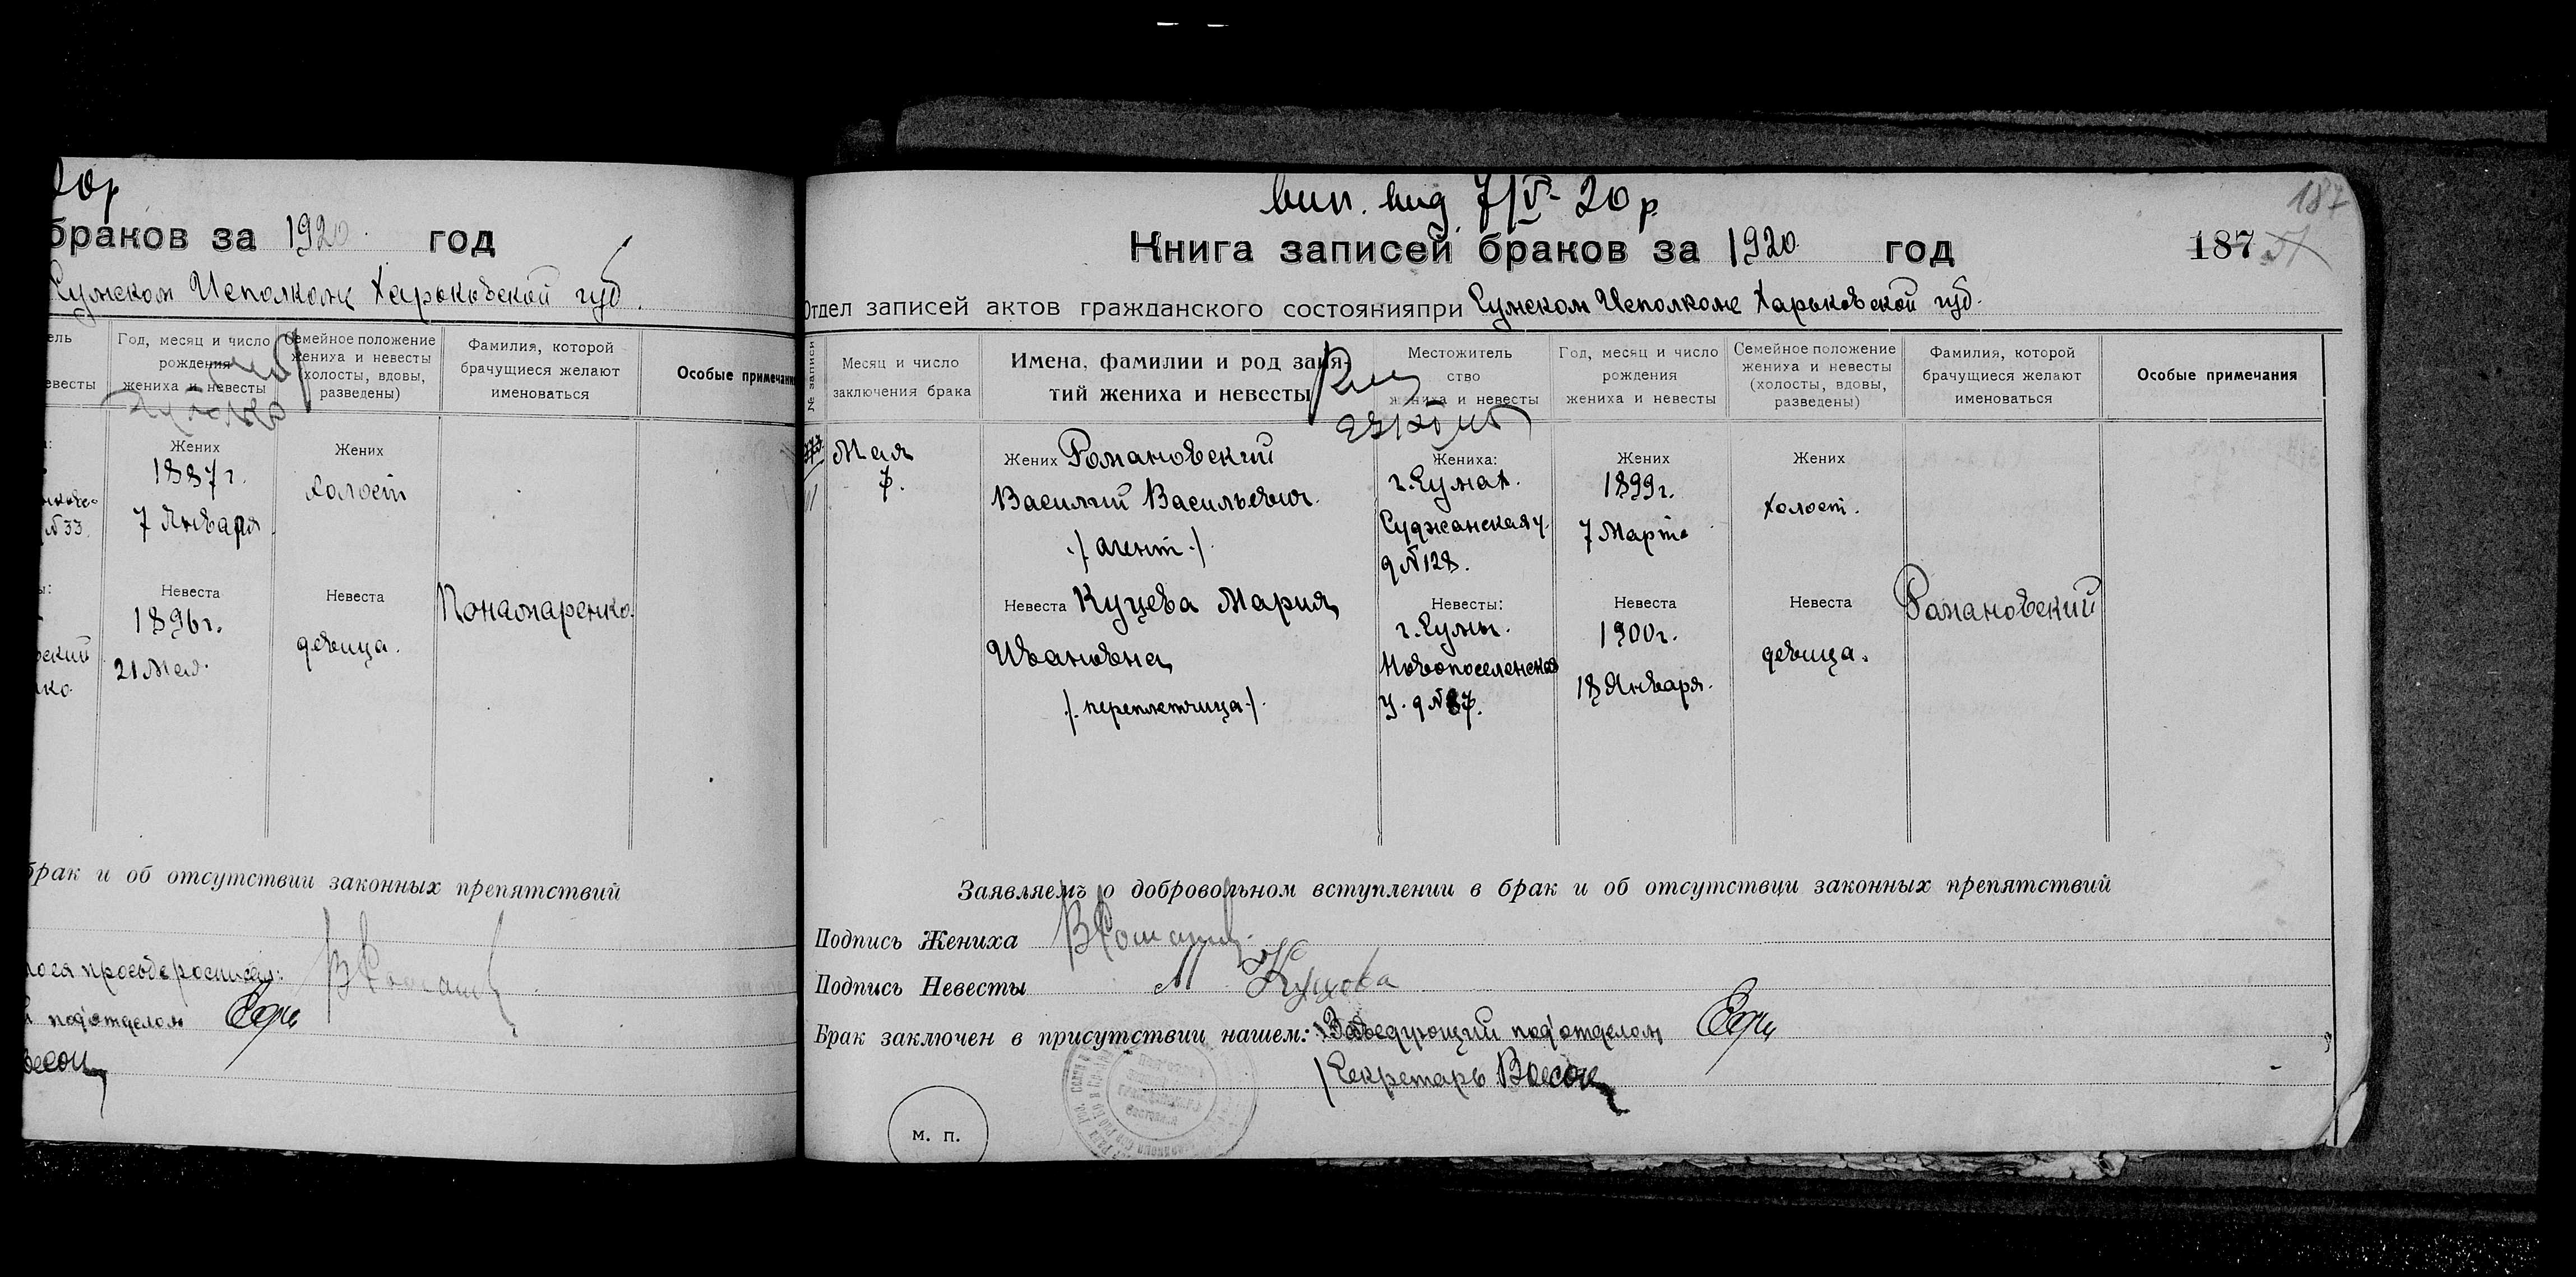 20р
браков за 1920 год
Сумском Исполкоме Харьковской губ.
Год, месяц и число
рождения
жениха и невесты
Семейное положение
жениха и невесты
(холосты, вдовы,
разведены)
Фамилия, которой
брачущиеся желают
именоваться
Особые примечания
Жених
1887 г.
7 Января
Жених
холост
№33.
Невеста
1896 г.
21 Мая.
Невеста
девица.
Понамаренко.
брак и об отсутствии законных препятствий
подотделом
вип. вид. 7/V- 20р
187
Книга записей браков за 1920 год
187
Отдел записей актов гражданского состоянияпри Сумском Исполкоме Харьковской губ.
№ записи
Месяц и число
заключения брака
Имена, фамилии и род заня-
тий жениха и невесты
Местожитель
ство
жениха и невесты
Год, месяц и число
рождения
жениха и невесты
Семейное положение
жениха и невесты
(холосты, вдовы,
разведены)
Фамилия, которой
брачущиеся желают
именоваться
Особые примечания
Мая
7.
Жених Романовский
Василий Васильевич.
/агент/
Жениха:
г. Сумах.
Суджанская у.
д №128.
Жених
1899 г.
7 Марта
Жених
холост.
Невеста Куцева Мария
Ивановна
/переплетчица/
Невесты:
г. Сумы.
Новопоселенская
у. д №87.
Невеста
1900 г.
18 Января.
Невеста
девица.
Романовский
Заявляемъ о добровольном вступлении в брак и об отсутствии законных препятствий
Подпись Жениха
Подпись Невесты М Куцева
Брак заключен в присутствии нашем: Заведующий подотделом
Секретарь
м. п.